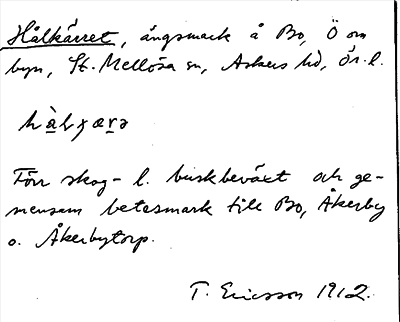 Hålkärret, ängsmark å Bo, Ö om
byn, St. Mellösa sn, Askers hd, Ör. l.
Förr skog- l. buskbeväxt och ge-
mensam betesmark till Bo, Åkerby
o. Åkerbytorp.
T. Ericsson 1912.